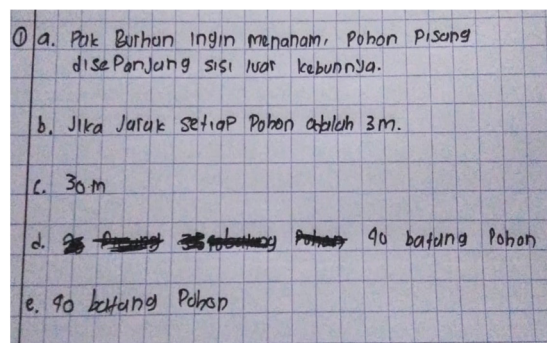 ① a. Pak Burhan ingin menanam, Pohon Pisang
disePanjang sisi luar kebunnya.
b. Jika Jarak setiap Pohon adalah 3m.
c. 30 m
d. 40 batang Pohon
e. 40 batang Pohon